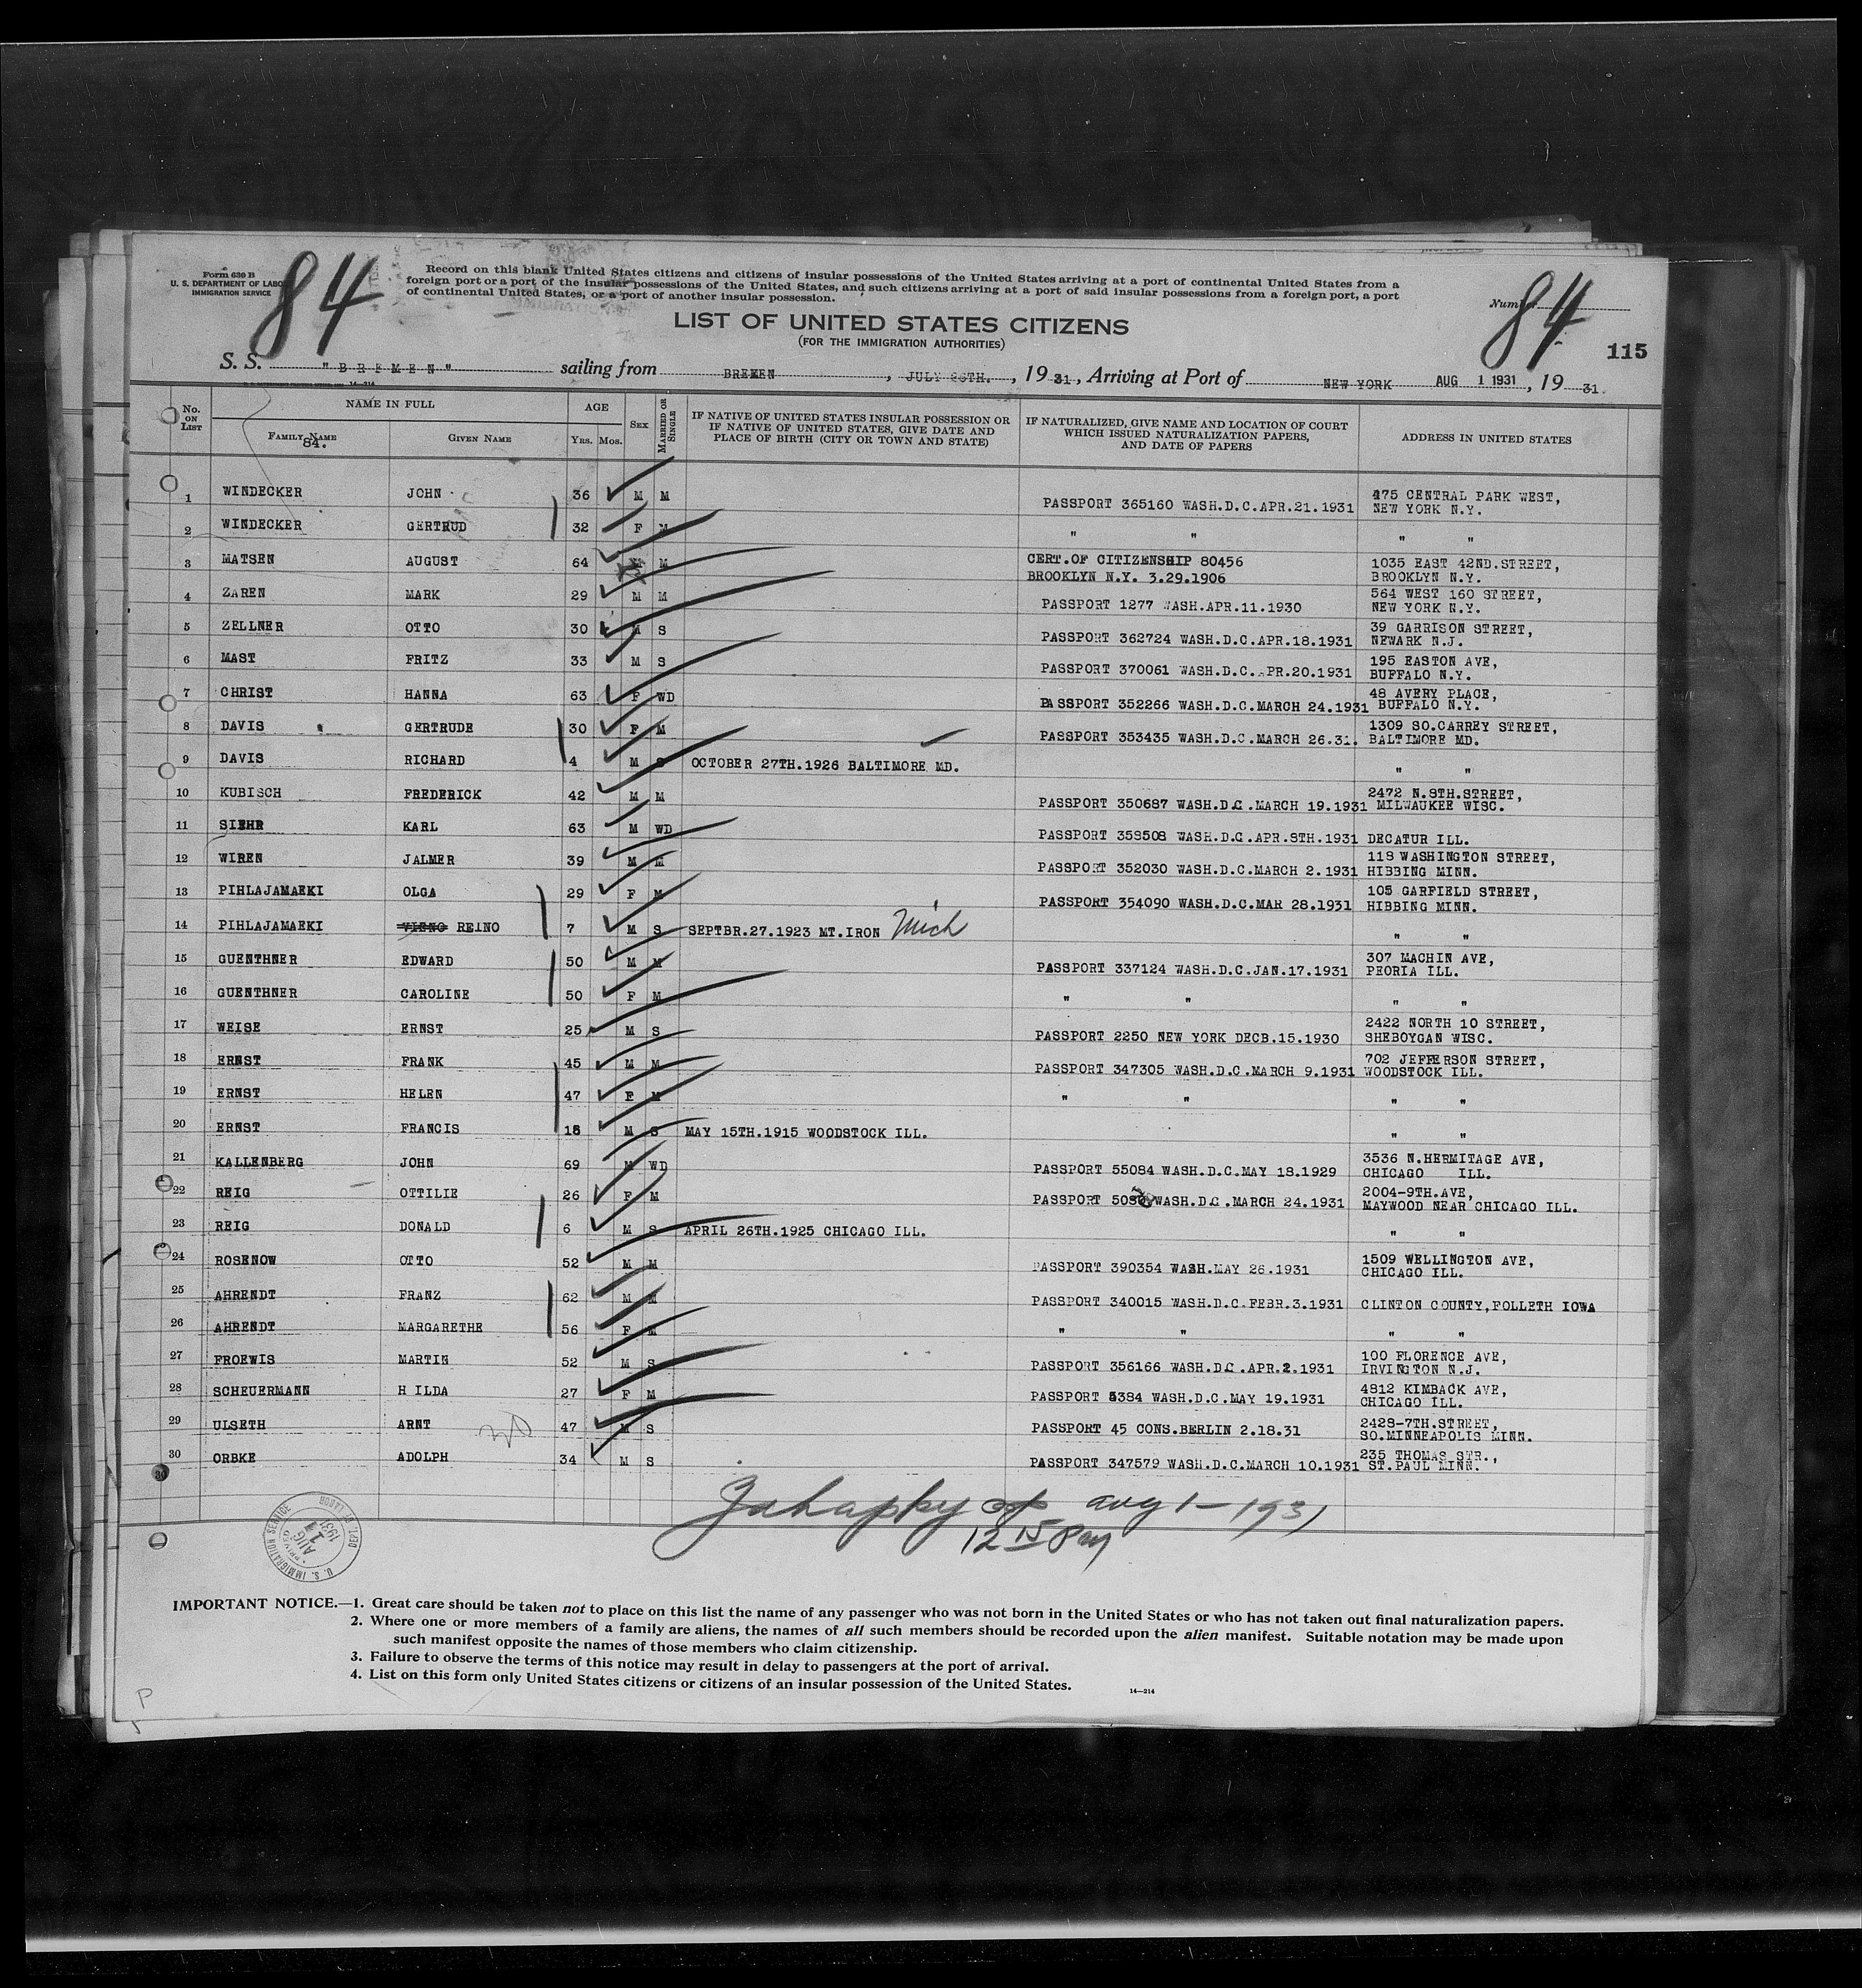 Form 630 B
U. S. DEPARTMENT OF LABOR
IMMIGRATION SERVICE
84
Record on this blank United States citizens and citizens of insular possessions of the United States arriving at a port of continental United States from a
foreign port or a port of the insular possessions of the United States, and such citizens arriving at a port of said insular possessions from a foreign port, a port
of continental United States, or a port of another insular possession.
Number 84
115
LIST OF UNITED STATES CITIZENS
(FOR THE IMMIGRATION AUTHORITIES)
S. S. "BREMEN" sailing from BREMEN, JULY 26TH., 1931, Arriving at Port of NEW YORK AUG 1 1931, 1931.
14-214
No. ON LIST NAME IN FULL FAMILY NAME 84. GIVEN NAME AGE YRS. MOS. SEX MARRIED OR SINGLE IF NATIVE OF UNITED STATES INSULAR POSSESSION OR IF NATIVE OF UNITED STATES, GIVE DATE AND PLACE OF BIRTH (CITY OR TOWN AND STATE) IF NATURALIZED, GIVE NAME AND LOCATION OF COURT WHICH ISSUED NATURALIZATION PAPERS, AND DATE OF PAPERS ADDRESS IN UNITED STATES
1 WINDECKER JOHN 36 M M PASSPORT 365160 WASH.D.C.APR.21.1931 475 CENTRAL PARK WEST, NEW YORK N.Y.
2 WINDECKER GERTRUD 32 F M " " " "
3 MATSEN AUGUST 64 M M CERT.OF CITIZENSHIP 80456 BROOKLYN N.Y. 3.29.1906 1035 EAST 42ND.STREET, BROOKLYN N.Y.
4 ZAREN MARK 29 M M PASSPORT 1277 WASH.APR.11.1930 564 WEST 160 STREET, NEW YORK N.Y.
5 ZELLNER OTTO 30 M S PASSPORT 362724 WASH.D.C.APR.18.1931 39 GARRISON STREET, NEWARK N.J.
6 MAST FRITZ 33 M S PASSPORT 370061 WASH.D.C.APR.20.1931 195 EASTON AVE, BUFFALO N.Y.
7 CHRIST HANNA 63 F WD PASSPORT 352266 WASH.D.C.MARCH 24.1931 48 AVERY PLACE, BUFFALO N.Y.
8 DAVIS GERTRUDE 30 F M PASSPORT 353435 WASH.D.C.MARCH 26.31. 1309 SO.CARREY STREET, BALTIMORE MD.
9 DAVIS RICHARD 4 M S OCTOBER 27TH.1926 BALTIMORE MD. " "
10 KUBISCH FREDERICK 42 M M PASSPORT 350687 WASH.D.C.MARCH 19.1931 2472 N.8TH.STREET, MILWAUKEE WISC.
11 SIEHR KARL 63 M WD PASSPORT 358508 WASH.D.C.APR.8TH.1931 DECATUR ILL.
12 WIREN JALMER 39 M M PASSPORT 352030 WASH.D.C.MARCH 2.1931 118 WASHINGTON STREET, HIBBING MINN.
13 PIHLAJAMAEKI OLGA 29 F M PASSPORT 354090 WASH.D.C.MAR 28.1931 105 GARFIELD STREET, HIBBING MINN.
14 PIHLAJAMAEKI VIENO REINO 7 M S SEPTBR.27.1923 MT.IRON Mich " "
15 GUENTHNER EDWARD 50 M M PASSPORT 337124 WASH.D.C.JAN.17.1931 307 MACHIN AVE, PEORIA ILL.
16 GUENTHNER CAROLINE 50 F M " " " "
17 WEISE ERNST 25 M S PASSPORT 2250 NEW YORK DECB.15.1930 2422 NORTH 10 STREET, SHEBOYGAN WISC.
18 ERNST FRANK 45 M M PASSPORT 347305 WASH.D.C.MARCH 9.1931 702 JEFFERSON STREET, WOODSTOCK ILL.
19 ERNST HELEN 47 F M " " " "
20 ERNST FRANCIS M S MAY 15TH.1915 WOODSTOCK ILL. " "
21 KALLENBERG JOHN 69 M WD PASSPORT 55084 WASH.D.C.MAY 18.1929 3536 N.HERMITAGE AVE, CHICAGO ILL.
22 REIG OTTILIE 26 F M PASSPORT WASH.D.C.MARCH 24.1931 2004-9TH.AVE, MAYWOOD NEAR CHICAGO ILL.
23 REIG DONALD 6 M S APRIL 26TH.1925 CHICAGO ILL. " "
24 ROSENOW OTTO 52 M M PASSPORT 390354 WASH.MAY 26.1931 1509 WELLINGTON AVE, CHICAGO ILL.
25 AHRENDT FRANZ 62 M M PASSPORT 340015 WASH.D.C.FEBR.3.1931 CLINTON COUNTY,FOLLETH IOWA
26 AHRENDT MARGARETHE 56 F M " " " "
27 FROEWIS MARTIN 52 M S PASSPORT 356166 WASH.D.C.APR.2.1931 100 FLORENCE AVE, IRVINGTON N.J.
28 SCHEUERMANN H ILDA 27 F M PASSPORT 5384 WASH.D.C.MAY 19.1931 4812 KIMBACK AVE, CHICAGO ILL.
29 ULSETH ARNT 47 M S PASSPORT 45 CONS.BERLIN 2.18.31 2428-7TH.STREET, SO.MINNEAPOLIS MINN.
30 ORBKE ADOLPH 34 M S PASSPORT 347579 WASH.D.C.MARCH 10.1931 235 THOMAS STR., ST.PAUL MINN.
30
aug 1 - 1931
12 15 Pm
U. S. IMMIGRATION SERVICE DEPT. OF LABOR AUG 1 1931
IMPORTANT NOTICE.—1. Great care should be taken not to place on this list the name of any passenger who was not born in the United States or who has not taken out final naturalization papers.
2. Where one or more members of a family are aliens, the names of all such members should be recorded upon the alien manifest. Suitable notation may be made upon
such manifest opposite the names of those members who claim citizenship.
3. Failure to observe the terms of this notice may result in delay to passengers at the port of arrival.
4. List on this form only United States citizens or citizens of an insular possession of the United States.
14—214
P